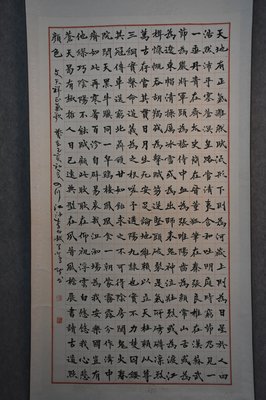 天地有正氣雜然賦流形下則為河嶽上則為日星於人曰
浩然沛乎塞蒼冥皇路當清夷含和吐明庭時窮節乃見一
一垂丹青在齊太史簡在晉董狐筆在秦張良椎在漢蘇武
節為嚴將軍頭為嵇侍中血為張睢陽齒為顏常山舌或
為遼東帽清操厲冰雪或為出師表鬼神泣壯烈或為渡江
楫慷慨吞胡羯或為擊賊笏逆豎頭破裂是氣所磅礴凜烈
萬古存當其貫日月生死安足論地維賴以立天柱賴以尊
三綱實繫命道義為之根嗟予遘陽九隸也實不力楚囚纓
其冠傳車送窮北鼎鑊甘如飴求之不可得陰房闃鬼火春
院閟天黑牛驥同一皂雞棲鳳凰食一朝蒙霧露分作溝中
瘠如此再寒暑百沴自辟易哀哉沮洳場為我安樂國豈有
他繆巧陰陽不能賊顧此耿耿在仰視浮雲白悠悠我心悲
蒼天曷有極哲人日已遠典刑在夙昔風簷展書讀古道照
顏色 文天祥正氣歌